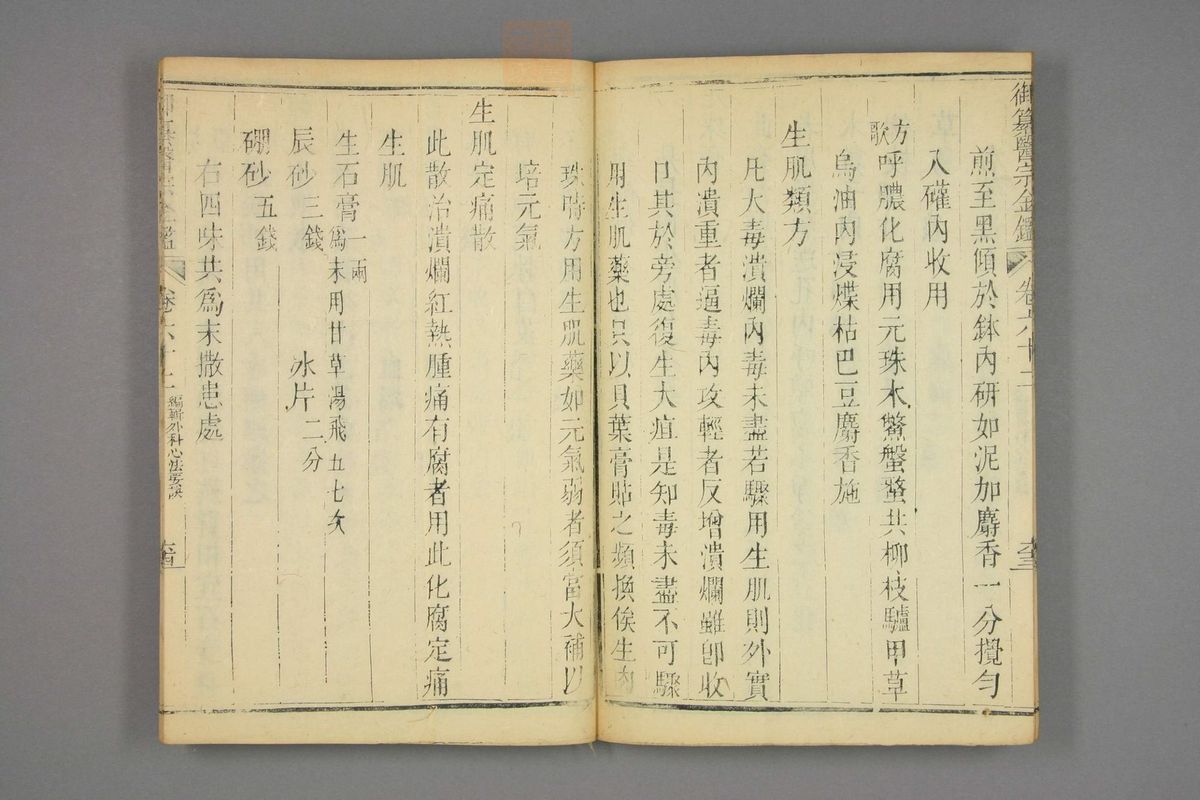 御纂醫宗金鑑 卷六十二 
煎至黑傾於鉢內研如泥加麝香一分攪勻
入礶內收用
方歌呼膿化腐用元珠木鱉螌蝥共栁枝驢甲草
烏油內浸煠枯巴豆麝香施
生肌類方
凡大毒潰爛內毒未盡若驟用生肌則外實
內潰重者逼毒內攻輕者反增潰爛雖卽收
口其於旁處復生大疽是知毒未盡不可驟
用生肌藥也只以貝葉膏貼之頻換俟生肉
珠時方用生肌藥如元氣弱者須當大補以
培元氣
生肌定痛散
此散治潰爛紅熱腫痛有腐者用此化腐定痛
生肌
生石膏一兩爲末用甘草湯飛五七次
辰砂三錢 冰片二分
硼砂五錢
右四味共爲末撒患處
卷六十二 編輯外科心法要訣